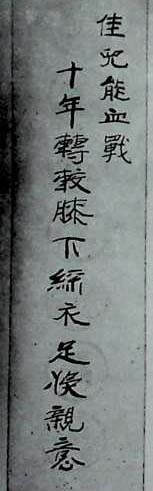 佳兒能血戰
十年轉敎膝下綵衣足娛親意